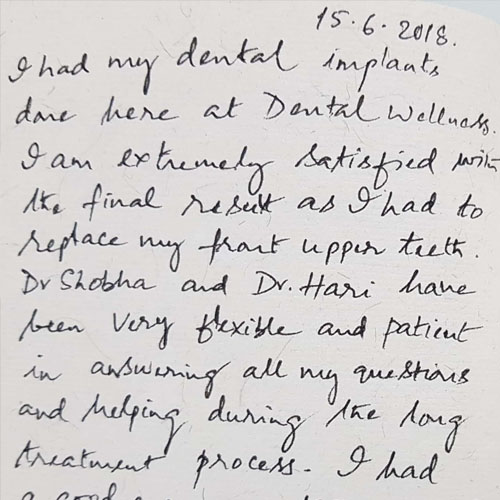 15.6.2018.
I had my dental implants
done here at Dental Wellness.
I am extremely satisfied with
the final result as I had to
replace my front upper teeth.
Dr Shobha and Dr. Hari have
been very flexible and patient
in answering all my questions
and helping during the long
treatment process. I had
a good